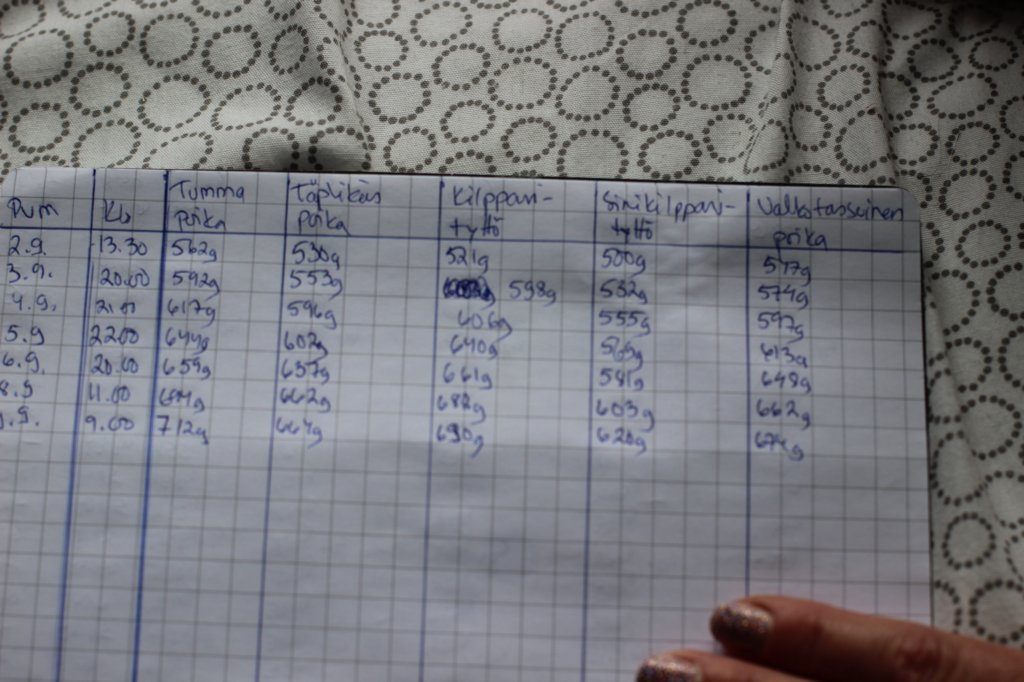 Pvm Klo Tumma poika Täplikäs poika Kilppari-tyttö Sinikilppari-tyttö Valkotassuinen poika
2.9. 13.30 562g 530g 521g 500g 547g
3.9. 20.00 592g 553g 598g 532g 574g
4.9. 21.00 617g 596g 606g 555g 597g
5.9 22.00 644g 602g 640g 565g 613g
6.9. 20.00 659g 657g 661g 581g 648g
8.9 11.00 684g 662g 682g 603g 662g
9.00 712g 664g 690g 620g 674g